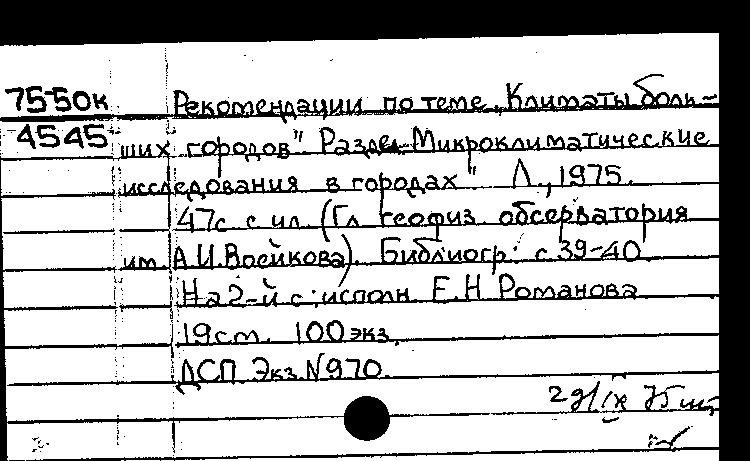 75-50к Рекомендации по теме „Климаты боль-
4545 ших городов" Раздел „Микроклиматические
исследования в городах" Л., 1975.
47с с ил. (Гл геофиз. обсерватория
им А.И.Воейкова). Библиогр: с 39-40
На 2-й с: исполн. Е.Н Романова
19см. 100 экз.
ДСП Экз.N970.
29/IX 75